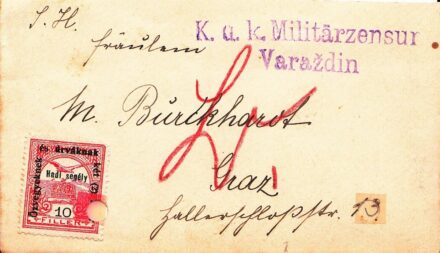 S. H.
Fräulein
K. u. k. Militärzensur
Varaždin
M. Burckhardt
Graz
Hallerschloßstr. 13.
Özvegyeknek és árváknak két (2)
Hadi segély
10
FILLÉR